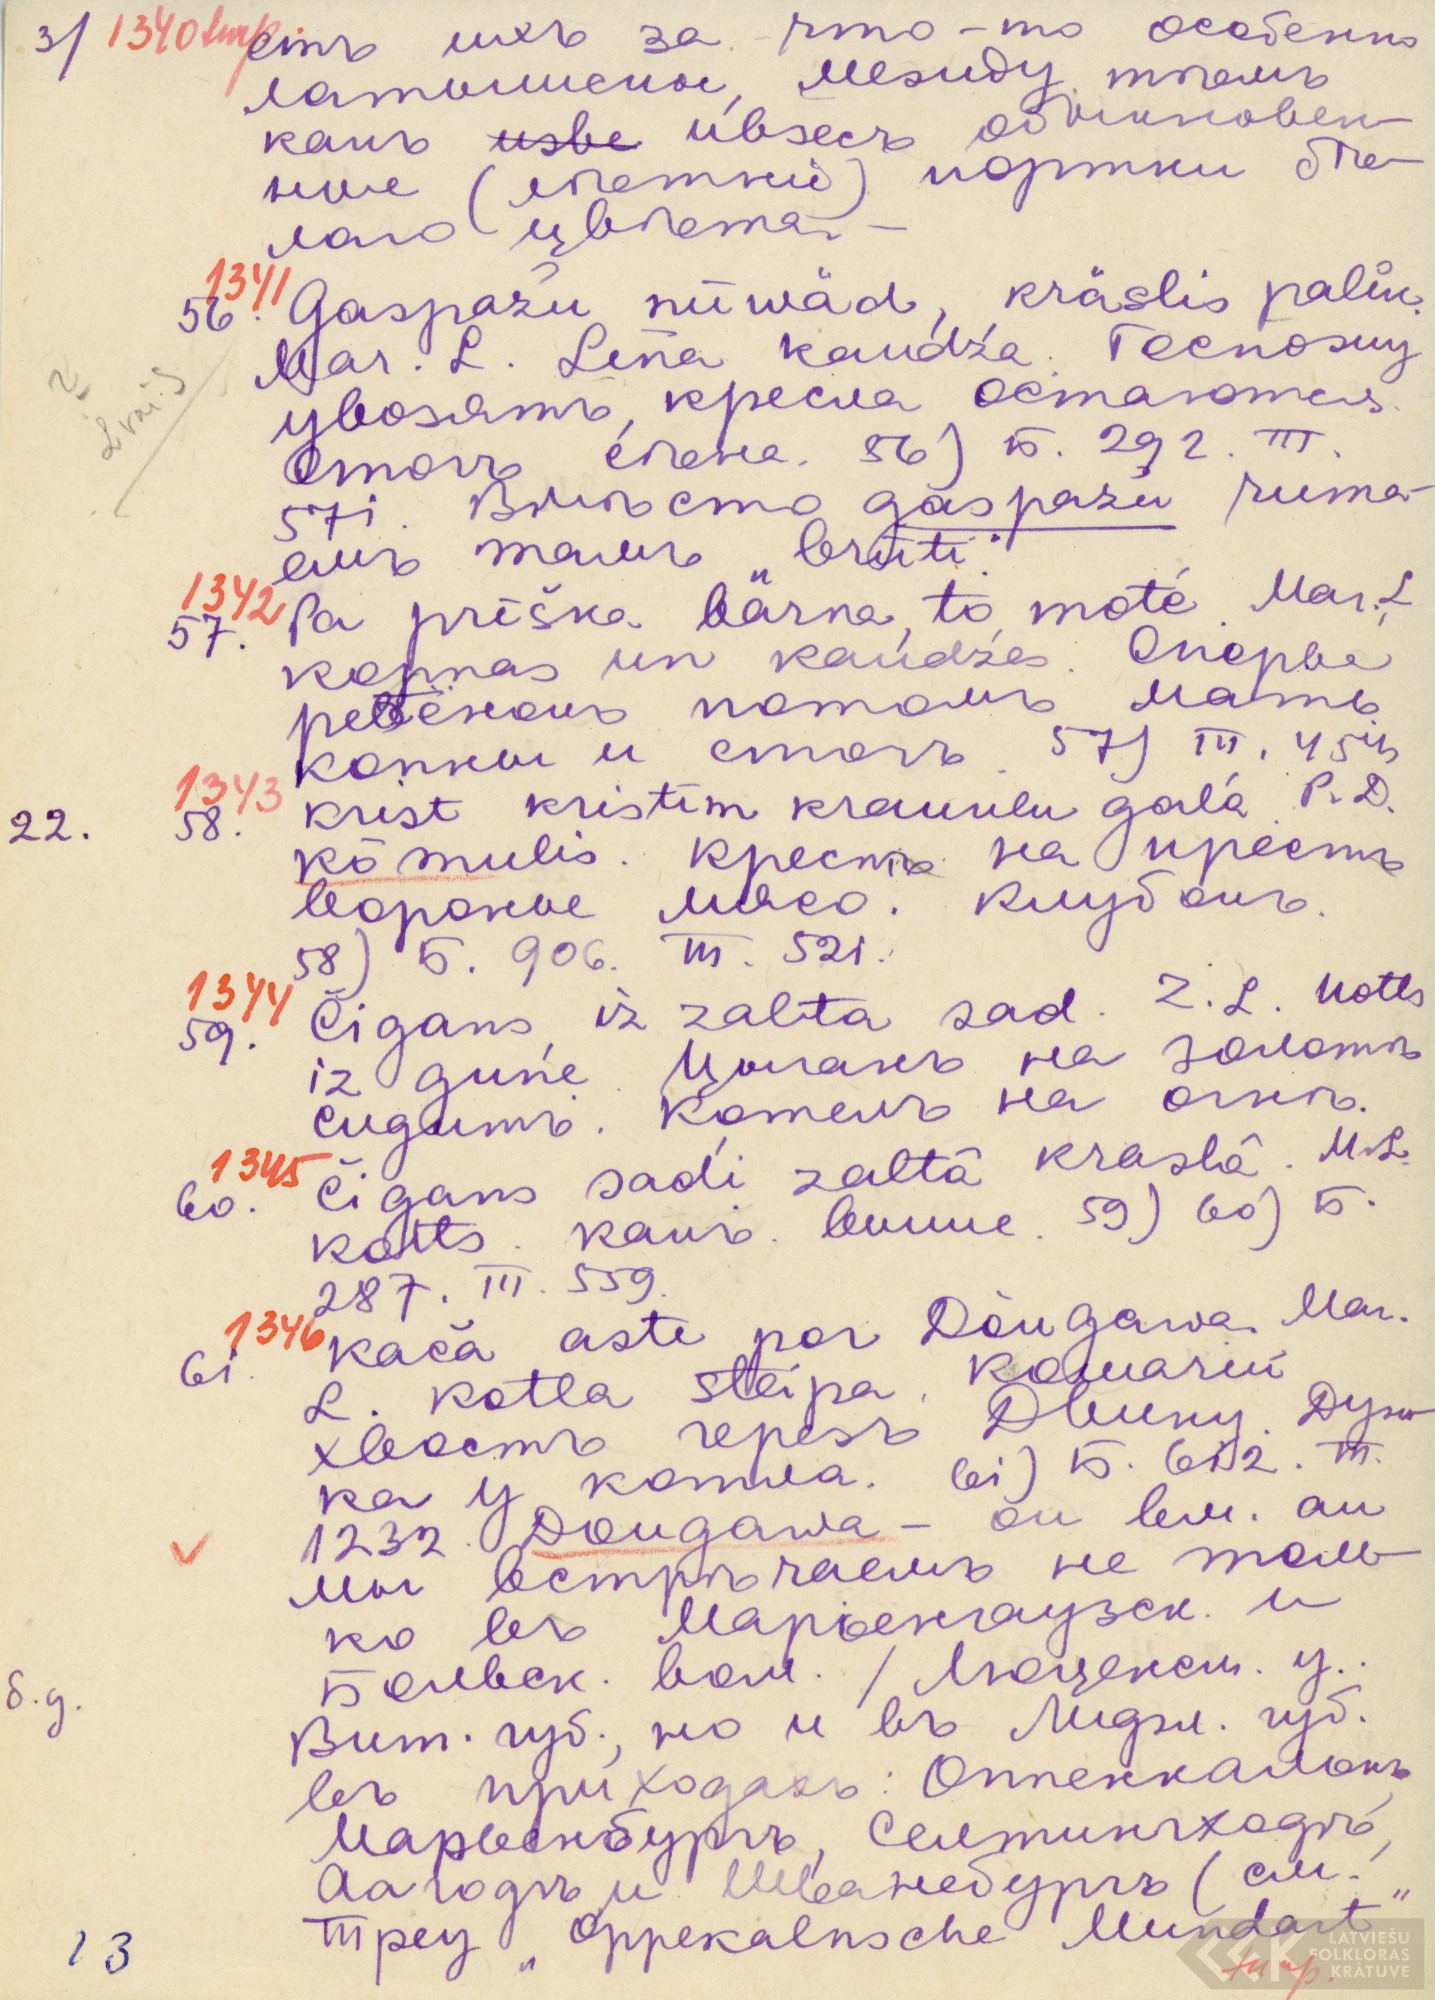 3/ 1340 turp. етъ ихъ за что-то особенно
латышское, между тѣмъ
какъ извѣ ивзесъ обыкновен-
ные (лѣтніе) портки бѣ-
лаго цвѣта. –
1341
56. Gaspažu nūwäd, kräslis palīk.
Mar. L. Sīna kaudźa. Госпожу
увозятъ, кресла остаются.
Стогъ сѣна. 56) Б. 292. III.
571. Вмѣсто gaspažu чита-
емъ тамъ „brūti“.
1342
57. Pa prīška bärna, to moté. Mar. L.
kopnas un kaudźes. Сперва
ребёнокъ потомъ мать.
Копны и стогъ. 57) III. 45
1343
22. 58. Krist kristīm kraunlu galá. P. D.
kōmulis. Крестъ на крестъ
воронье мясо. Клубокъ.
58) Б. 906. III. 521.
1344
59. Čigans iz zalta sad. Z. L. Kotls
iz guńe. Цыганъ на золотѣ
сидитъ. Котелъ на огнѣ.
1345
60. Čigans sadi zaltā kraslā. M. L.
kotls. какъ. выше. 59) 60) Б.
287. III. 559.
1346
61. Kača aste por Dōugawa. Mar.
L. Kotla steipa. Кошачій
хвостъ черезъ Двину. Дуж-
ка у котла. 61) Б. 612. III.
1232. Dougawa – ou вм. au
мы встрѣчаемъ не толь-
ко въ Марiенгаузск. и
Болвск. вол. / Люценск. у.
б.д. Вит. губ., но и въ Лифл. губ.
въ приходахъ: Оппеккальнъ,
Марьенбургъ, Селтингхофъ,
Аагофъ и Шванебургъ (см.
Трей „Oppekalnsche Mundart“
turp.
13